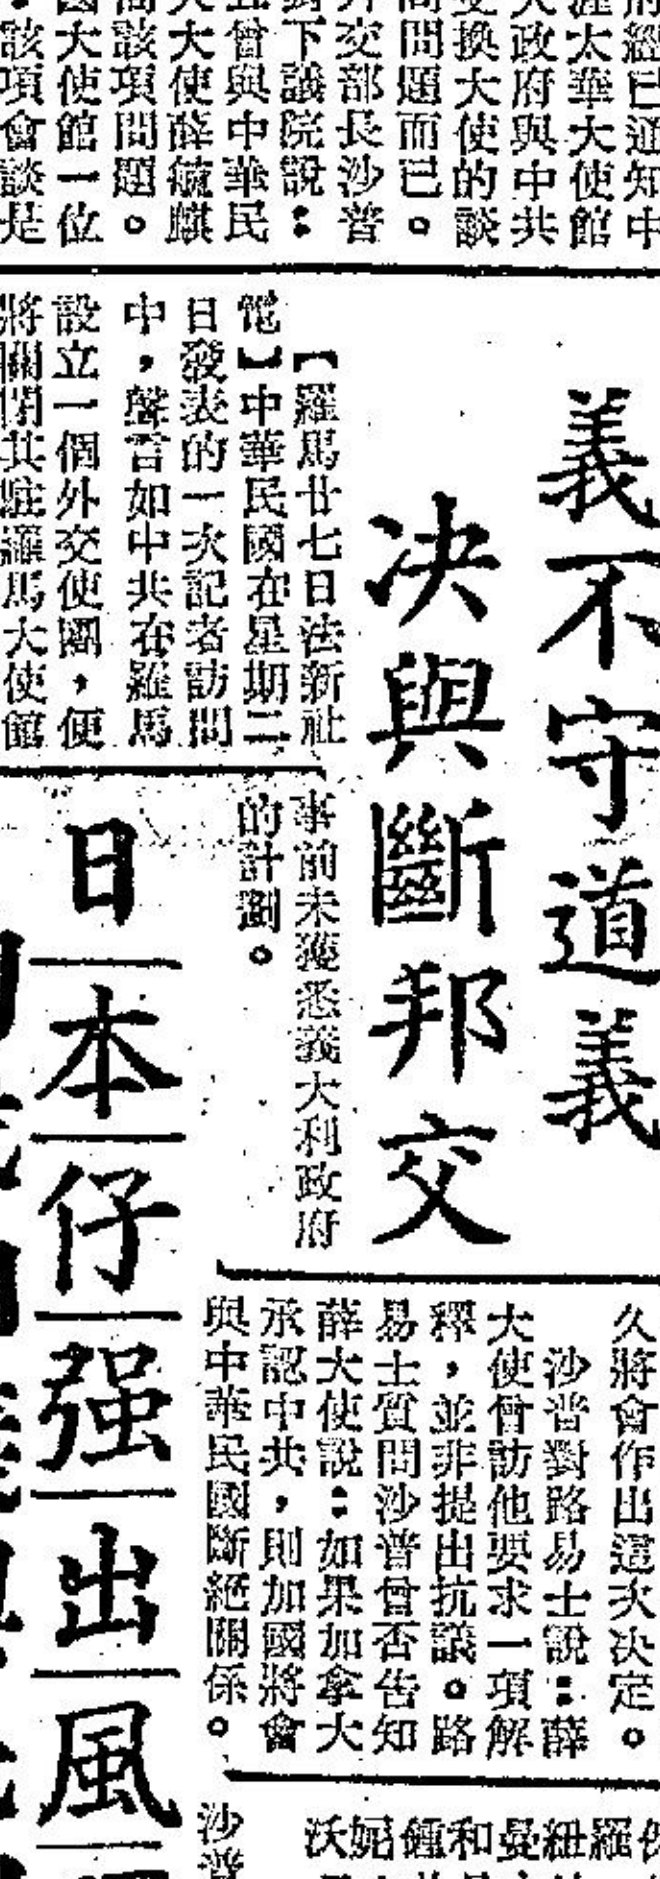 府經已通知中
渥太華大使館
大政府與中共
交換大使的談
問題而已。
外交部長沙普
對下議院說：
曾與中華民
大使薛毓麒
商該項問題。
國大使館一位
該項會談是
義不守道義
决與斷邦交
【羅馬廿七日法新社
電】中華民國在星期二
日發表的一次記者訪問
中，聲言如中共在羅馬
設立一個外交使團，便
將關閉其駐羅馬大使館
事前未獲悉義大利政府
的計劃。
久將會作出這次决定。
沙普對路易士說：薛
大使曾訪他要求一項解
釋，並非提出抗議。路
易士質問沙普曾否告知
薛大使說：如果加拿大
承認中共，則加國將會
與中華民國斷絕關係。
日本仔强出風
沙普
羅紐曼和鍾妮沃